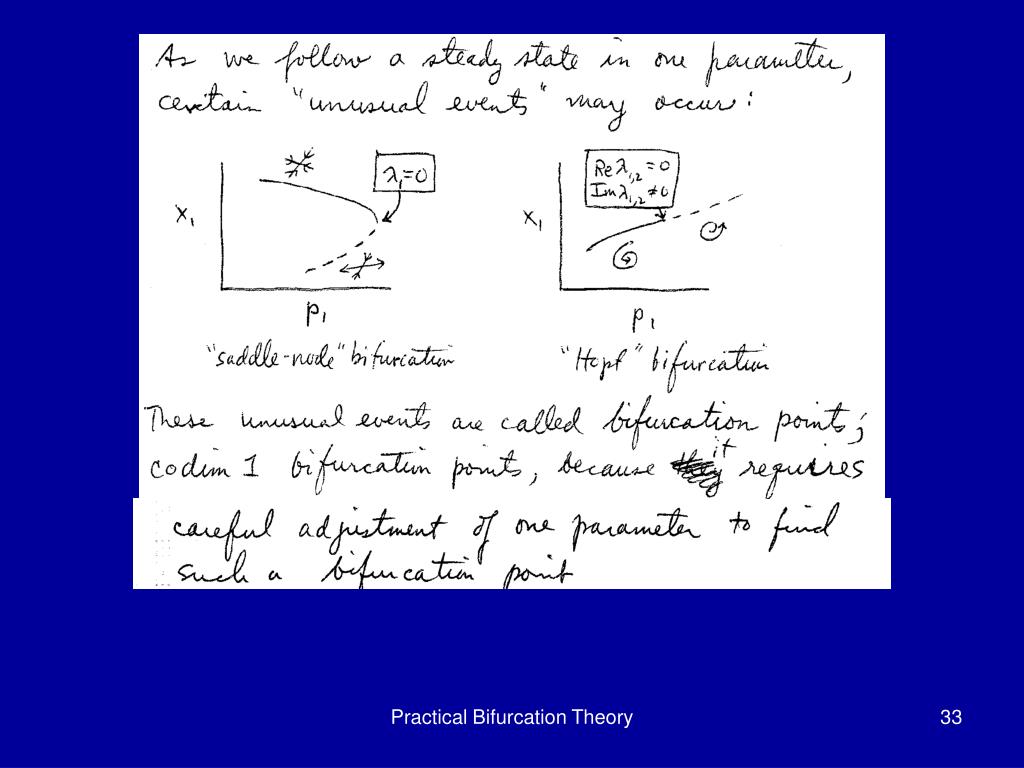 As we follow a steady state in one parameter,
certain "unusual events" may occur:
λ₁=0
x₁
p₁
"saddle-node" bifurcation
Re λ₁,₂ = 0
Im λ₁,₂ ≠ 0
x₁
p₁
"Hopf" bifurcation
These unusual events are called bifurcation points;
codim 1 bifurcation points, because it requires
careful adjustment of one parameter to find
such a bifurcation point
Practical Bifurcation Theory
33